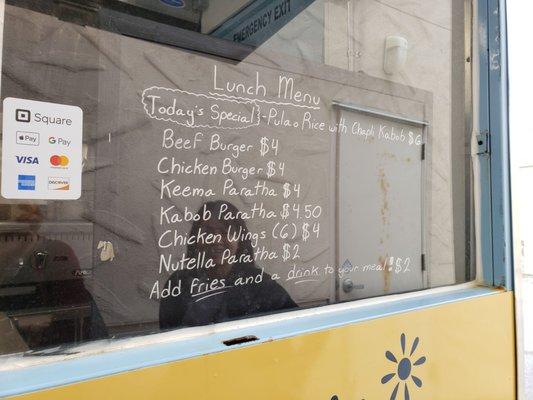 EMERGENCY EXIT
Lunch Menu
Today's Special - Pulao Rice with Chapli Kabob $6
Beef Burger $4
Chicken Burger $4
Keema Paratha $4
Kabob Paratha $4.50
Chicken Wings (6) $4
Nutella Paratha $2
Add fries and a drink to your meal! $2
Square
Pay
G Pay
VISA
mastercard
DISCOVER